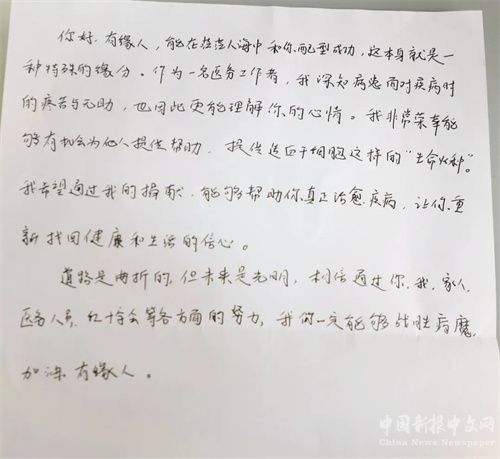 你好,有缘人,能在茫茫人海中和你配型成功,这本身就是一
种特殊的缘分。作为一名医务工作者,我深知病患面对疾病时
的痛苦与无助,也因此更能理解你的心情。我非常荣幸能
够有机会为他人提供帮助,提供造血干细胞这样的“生命火种”。
我希望通过我的捐献,能够帮助你真正治愈疾病,让你重
新找回健康和生活的信心。
道路是曲折的,但未来是光明,相信通过你、我、家人、
医务人员、红十字会等各方面的努力,我们一定能够战胜病魔,
加油,有缘人。
中国新报中文网
China News Newspaper